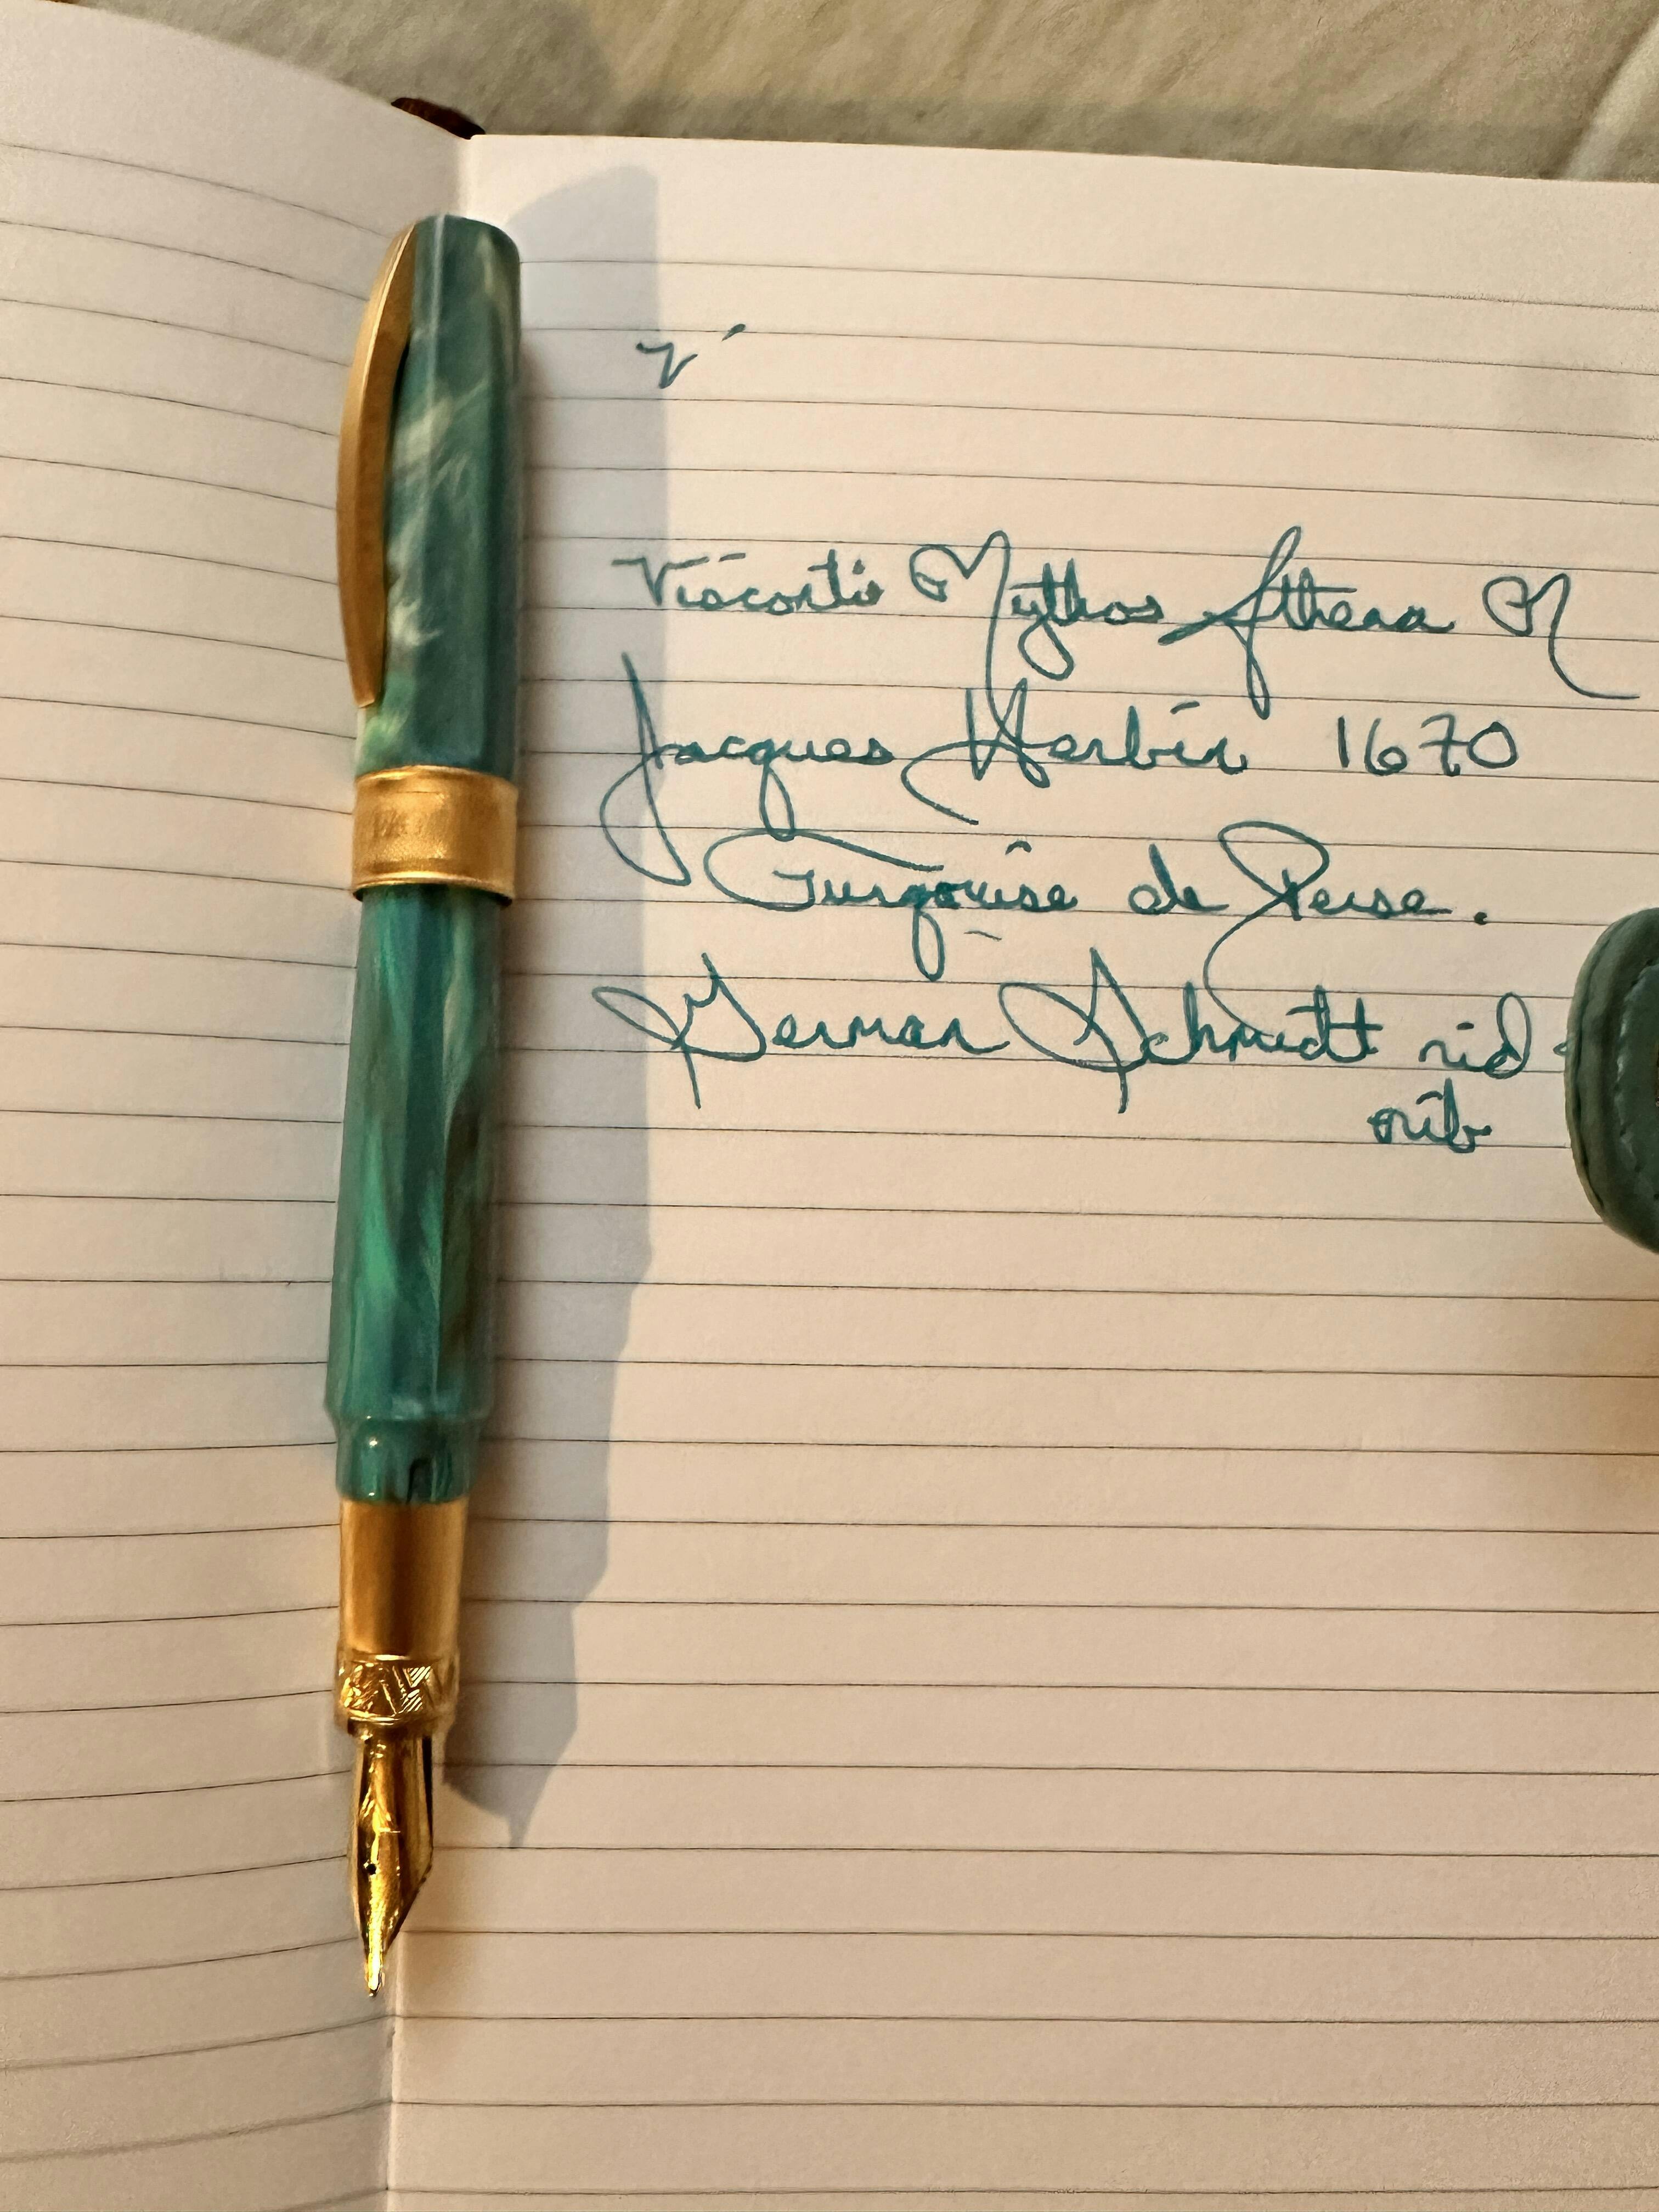 V
Visconti Mythos Athena M
Jacques Herbin 1670
Turqouise de Perse.
German Schmidt nid
nib